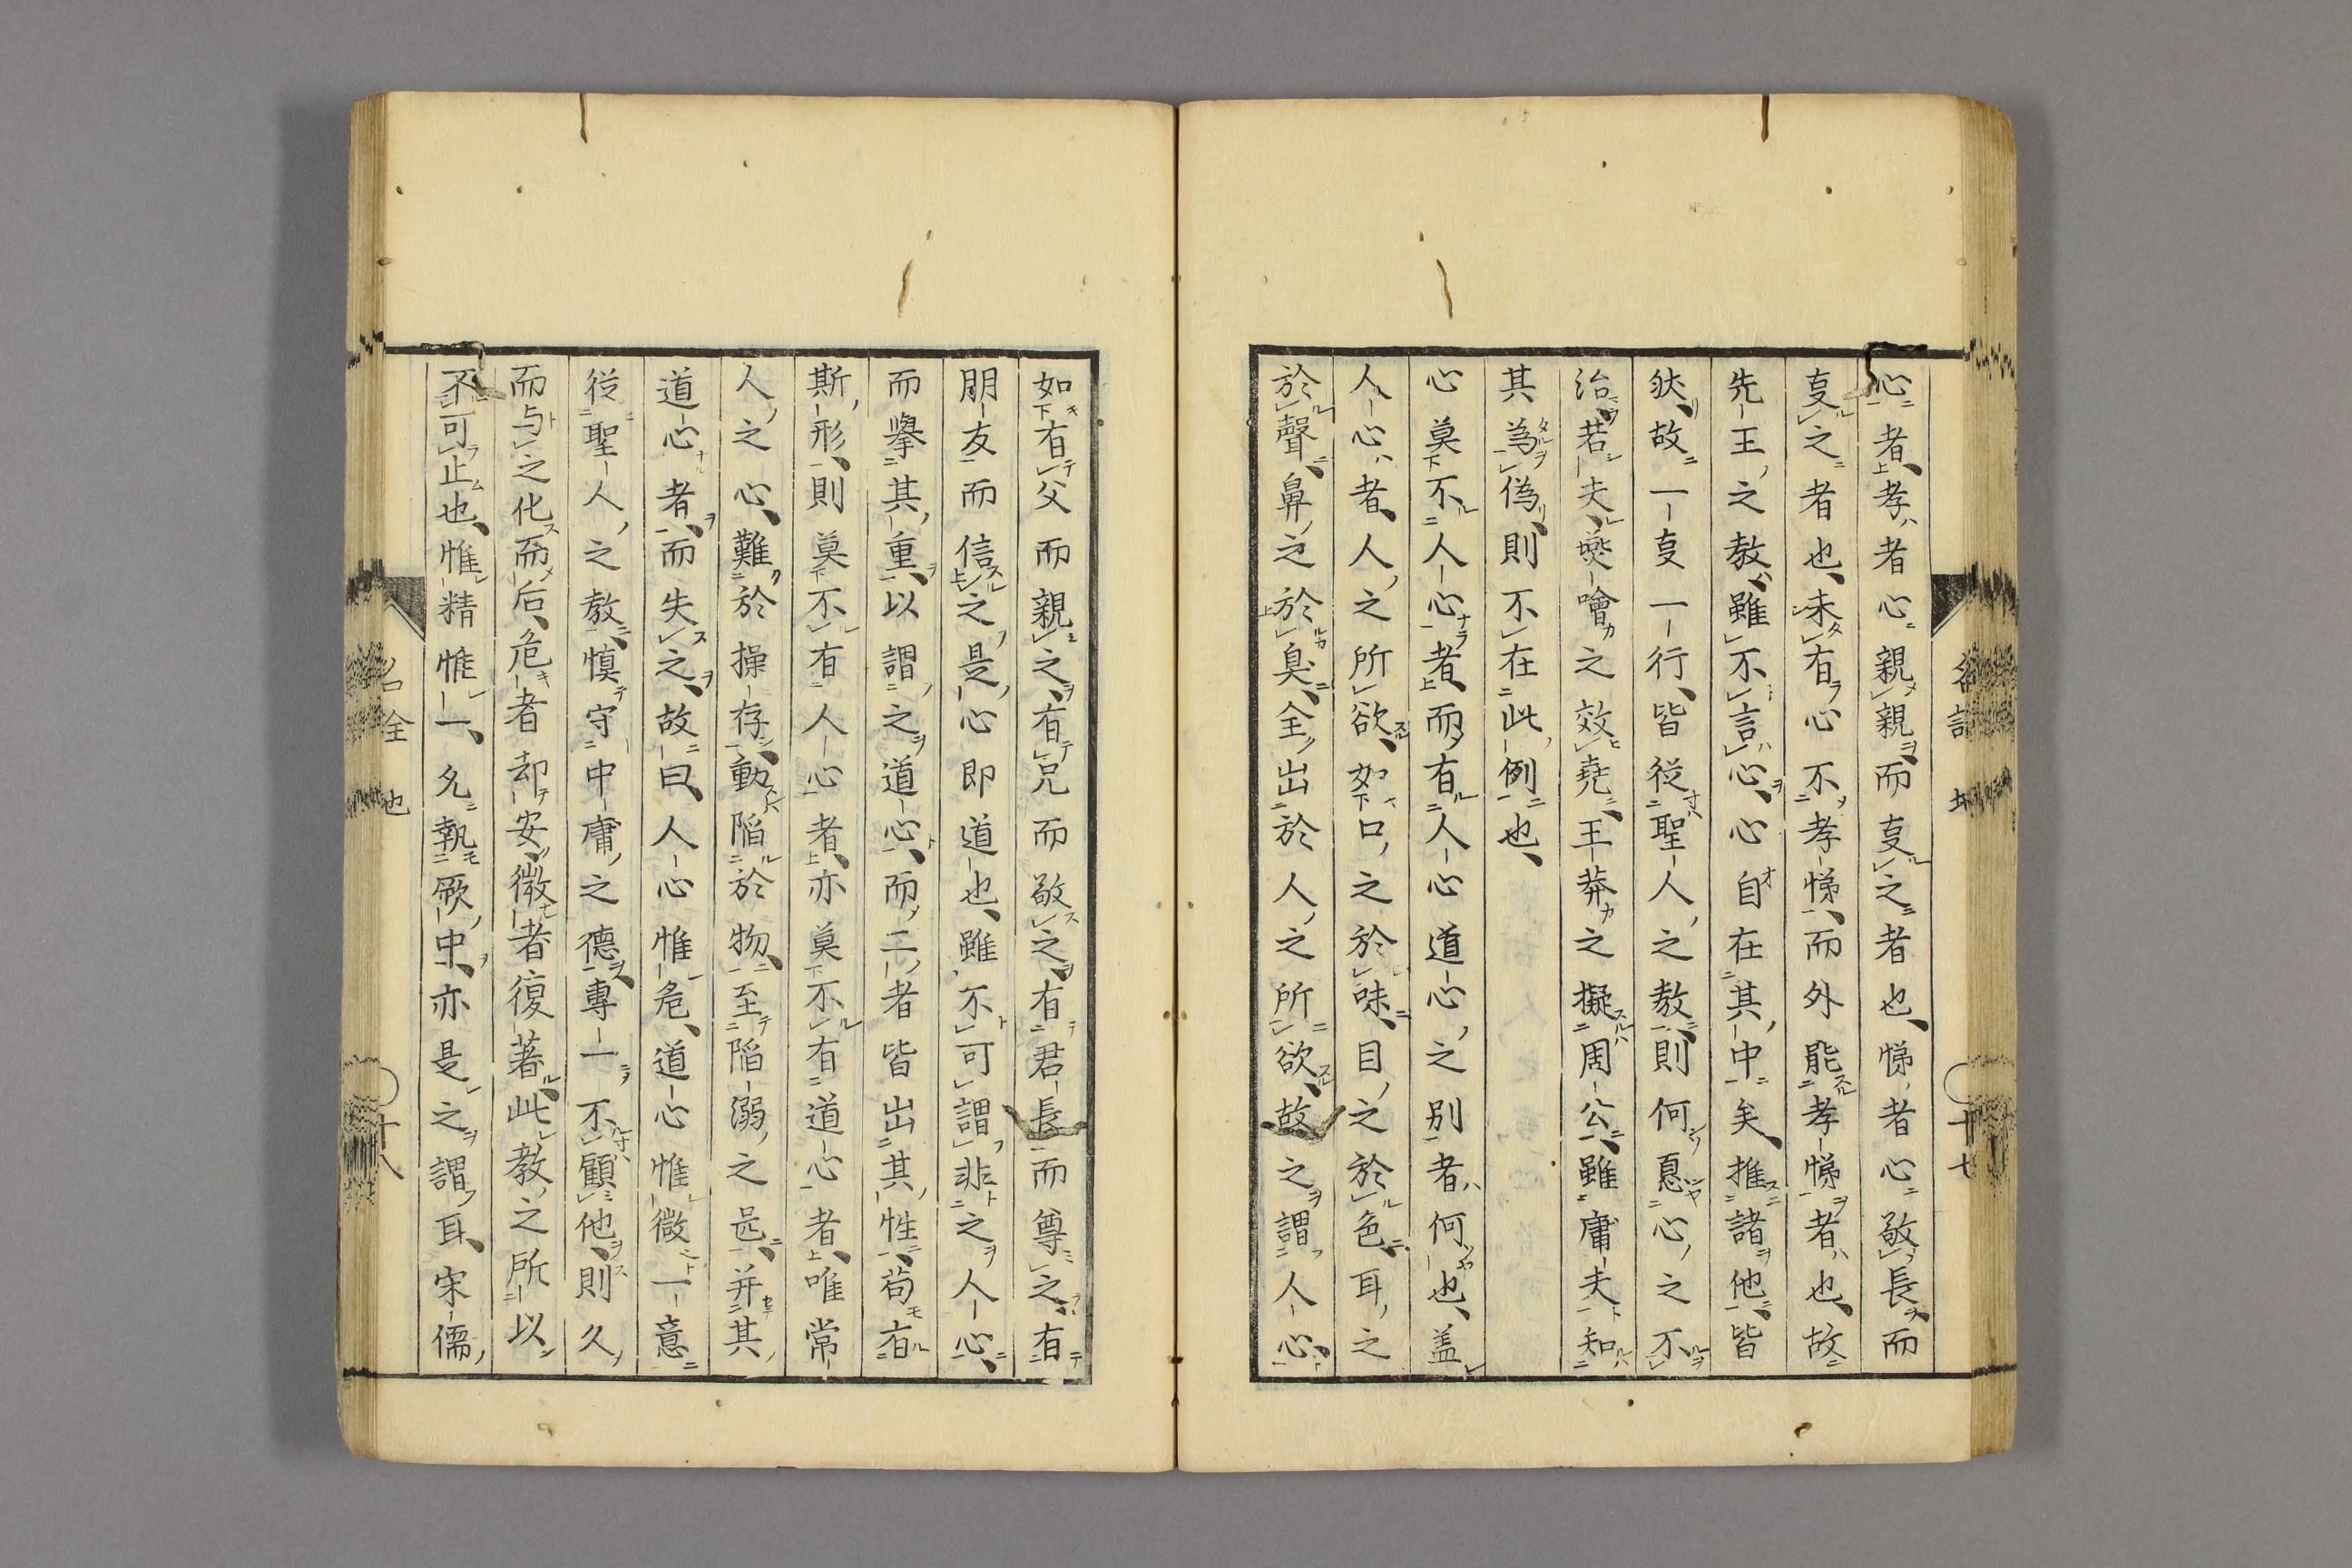 心者、孝者心親親而㕝之者也、悌者心敬長而
㕝之者也、未有心不孝悌、而外能孝悌者也、故
先王之教、雖不言心、心自在其中矣、推諸他、皆
狀、故一㕝一行、皆從聖人之教、則何患心之不
治、若夫燕噲之效堯、王莽之擬周公、雖庸夫知
其為偽、則不在此例也、
心莫不人心者、而有人心道心之別者何也、盖
人心者、人之所欲、如口之於味、目之於色、耳之
於聲、鼻之於臭、全出於人之所欲、故之謂人心、
如有父而親之、有兄而敬之、有君長而尊之、有
朋友而信之、是心即道也、雖不可謂非之人心、
而擧其重、以謂之道心、而二者皆出其性、苟有
斯形、則莫不有人心者、亦莫不有道心者、唯常
人之心、難於操存、動陷於物、至陷溺之甚、并其
道心者、而失之、故曰、人心惟危、道心惟微、一意
從聖人之教、慎守中庸之德、專一不顧他、則久
而与之化而后、危者却安、微者復著、此教之所以
不可止也、惟精惟一、允執厥中、亦是之謂耳、宋儒
十七
名全 也
十八